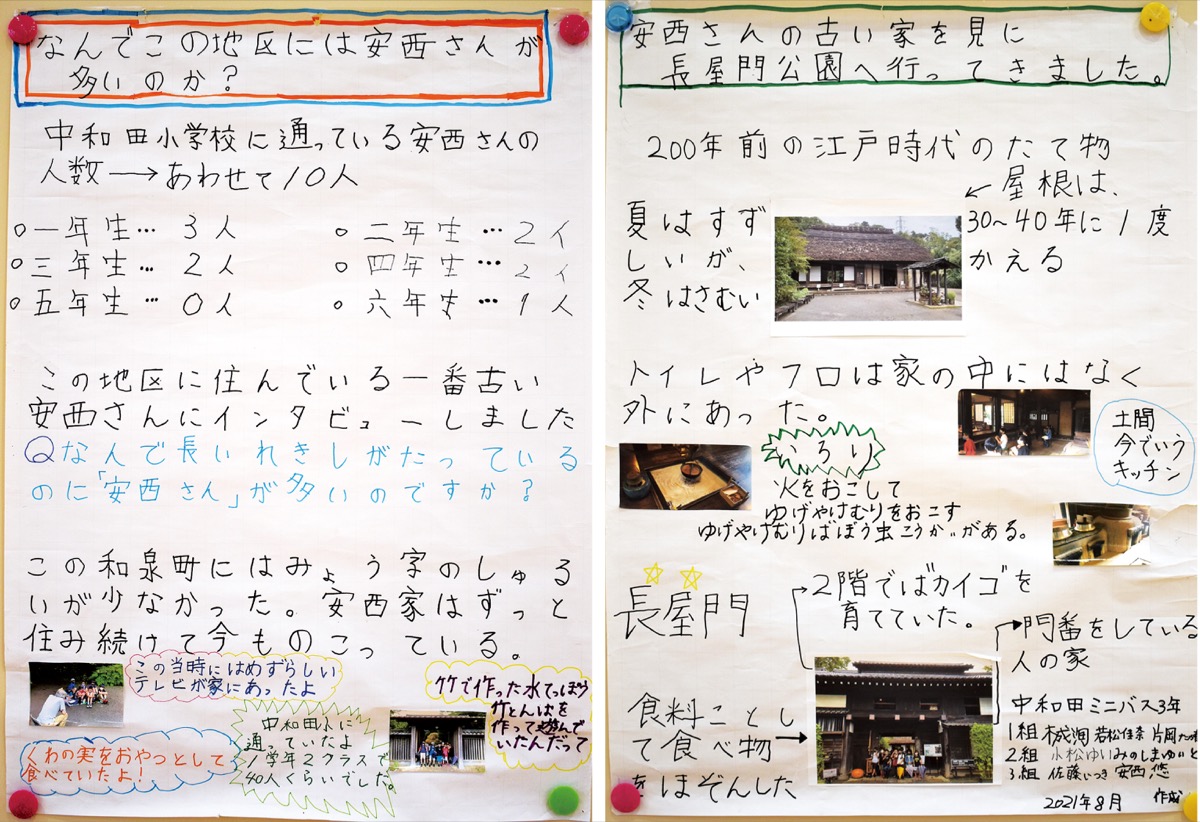 なんでこの地区には安西さんが
多いのか?
中和田小学校に通っている安西さんの
人数→あわせて10人
○一年生… 3人
○二年生… 2人
○三年生… 2人
○四年生… 2人
○五年生… 0人
○六年生… 1人
この地区に住んでいる一番古い
安西さんにインタビューしました
Qなんで長いれきしがたっている
のに「安西さん」が多いのですか?
この和泉町にはみょう字のしゅる
いが少なかった。安西家はずっと
住み続けて今ものこっている。
この当時にはめずらしい
テレビが家にあったよ
竹で作った水てっぽう
竹とんぼを
作って遊んで
いたんだって
中和田小に
通っていたよ
1学年2クラスで
40人くらいでした。
くわの実をおやつとして
食べていたよ!
安西さんの古い家を見に
長屋門公園へ行ってきました。
200年前の江戸時代のたて物
←屋根は、
30~40年に1度
かえる
夏はすず
しいが、
冬はさむい
トイレやフロは家の中にはなく
外にあった。
土間
今でいう
キッチン
いろり
火をおこして
ゆげやけむりをおこす
ゆげやけむりはぼう虫こうかがある。
長屋門
2階ではカイゴを
育てていた。
門番をしている
人の家
食料ことし
て食べ物
をほぞんした
中和田ミニバス3年
1組 若松佳奈 片岡
2組 小松ゆい みのしまゆいと
3組 佐藤いつき 安西悠
2021年8月 作成